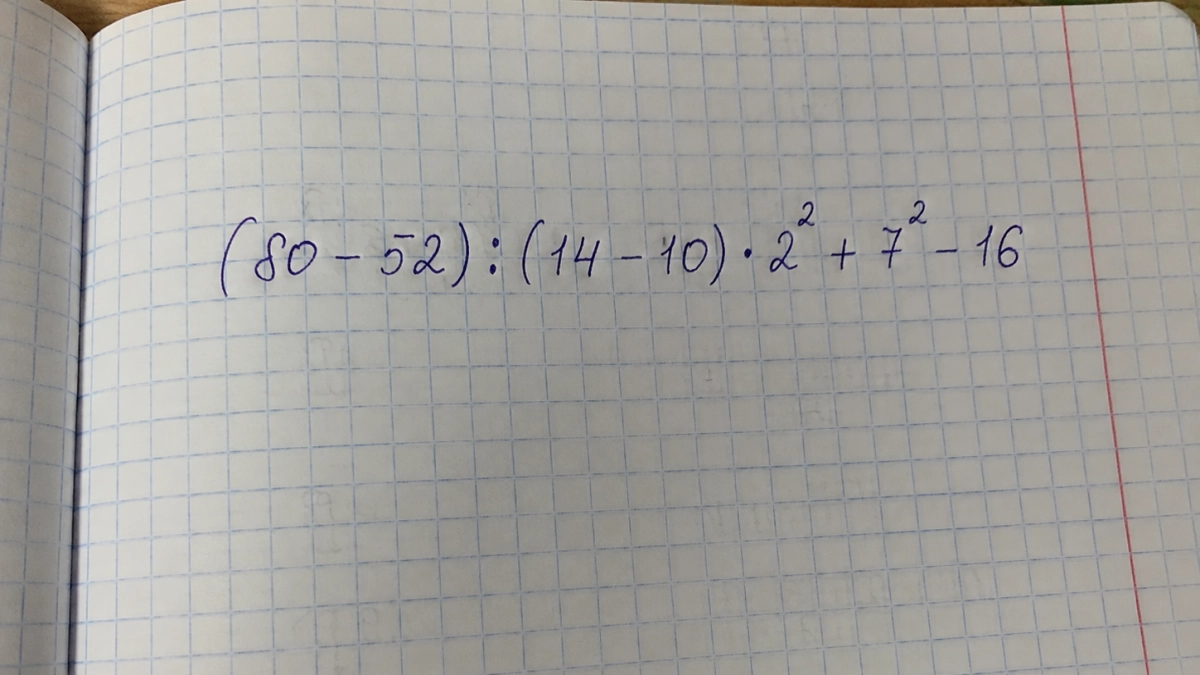 (80 - 52) : (14 - 10) · 2² + 7² - 16